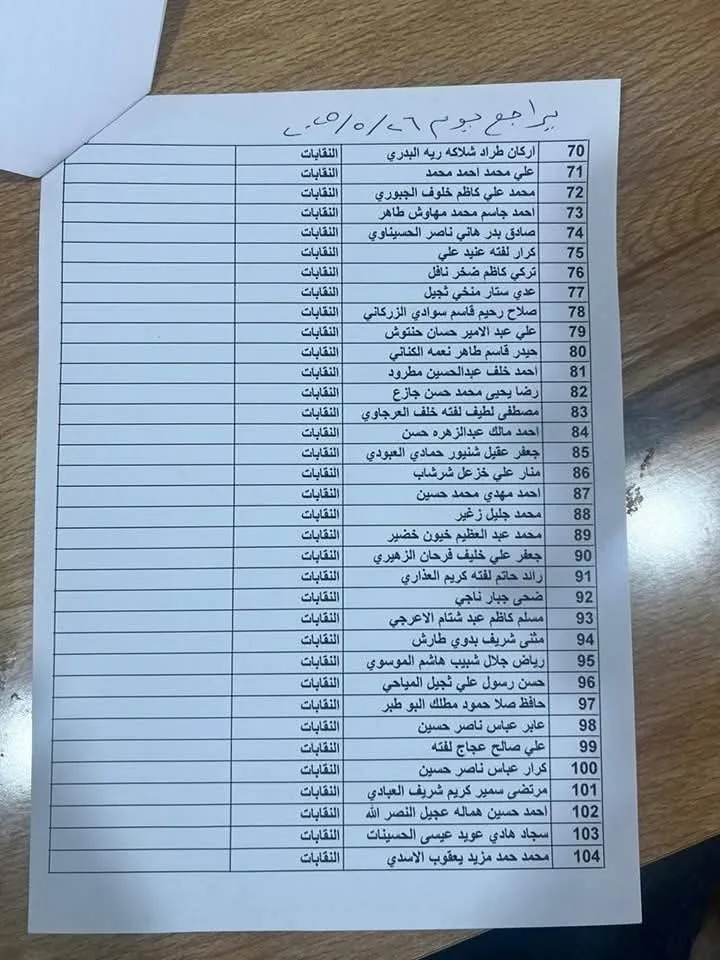 يراجع يوم ٢٦/٥/٢٠٢٥
70 اركان طراد شلاكه ريه البدري النقابات
71 علي محمد احمد محمد النقابات
72 محمد علي كاظم خلوف الجبوري النقابات
73 احمد جاسم محمد مهاوش طاهر النقابات
74 صادق بدر هاني ناصر الحسيناوي النقابات
75 كرار لفته عنيد علي النقابات
76 تركي كاظم ضخر نافل النقابات
77 عدي ستار منخي ثجيل النقابات
78 صلاح رحيم قاسم سوادي الزركاني النقابات
79 علي عبد الامير حسان حنتوش النقابات
80 حيدر قاسم طاهر نعمه الكناني النقابات
81 احمد خلف عبدالحسين مطرود النقابات
82 رضا يحيى محمد حسن جازع النقابات
83 مصطفى لطيف لفته خلف العرجاوي النقابات
84 احمد مالك عبدالزهره حسن النقابات
85 جعفر عقيل شنيور حمادي العبودي النقابات
86 منار علي خزعل شرشاب النقابات
87 احمد مهدي محمد حسين النقابات
88 محمد جليل زغير النقابات
89 محمد عبد العظيم خيون خضير النقابات
90 جعفر علي خليف فرحان الزهيري النقابات
91 رائد حاتم لفته كريم العذاري النقابات
92 ضحى جبار ناجي النقابات
93 مسلم كاظم عبد شتام الاعرجي النقابات
94 مثنى شريف بدوي طارش النقابات
95 رياض جلال شبيب هاشم الموسوي النقابات
96 حسن رسول علي ثجيل المياحي النقابات
97 حافظ صلا حمود مطلك البو طبر النقابات
98 عابر عباس ناصر حسين النقابات
99 علي صالح عجاج لفته النقابات
100 كرار عباس ناصر حسين النقابات
101 مرتضى سمير كريم شريف العبادي النقابات
102 احمد حسين هماله عجيل النصر الله النقابات
103 سجاد هادي عويد عيسى الحسينات النقابات
104 محمد حمد مزيد يعقوب الاسدي النقابات